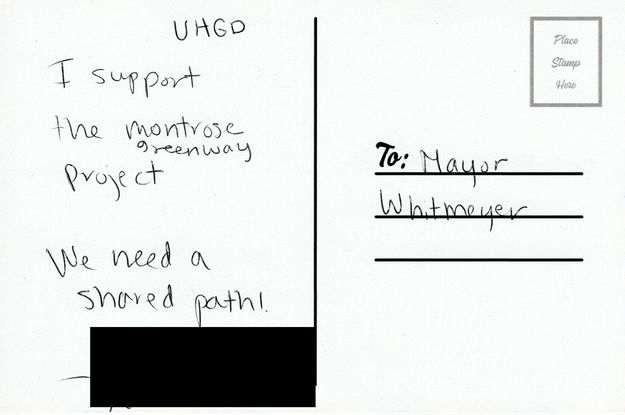 UHGD
I support
the montrose
greenway
project
We need a
shared path!
Place
Stamp
Here
To: Mayor
Whitmeyer